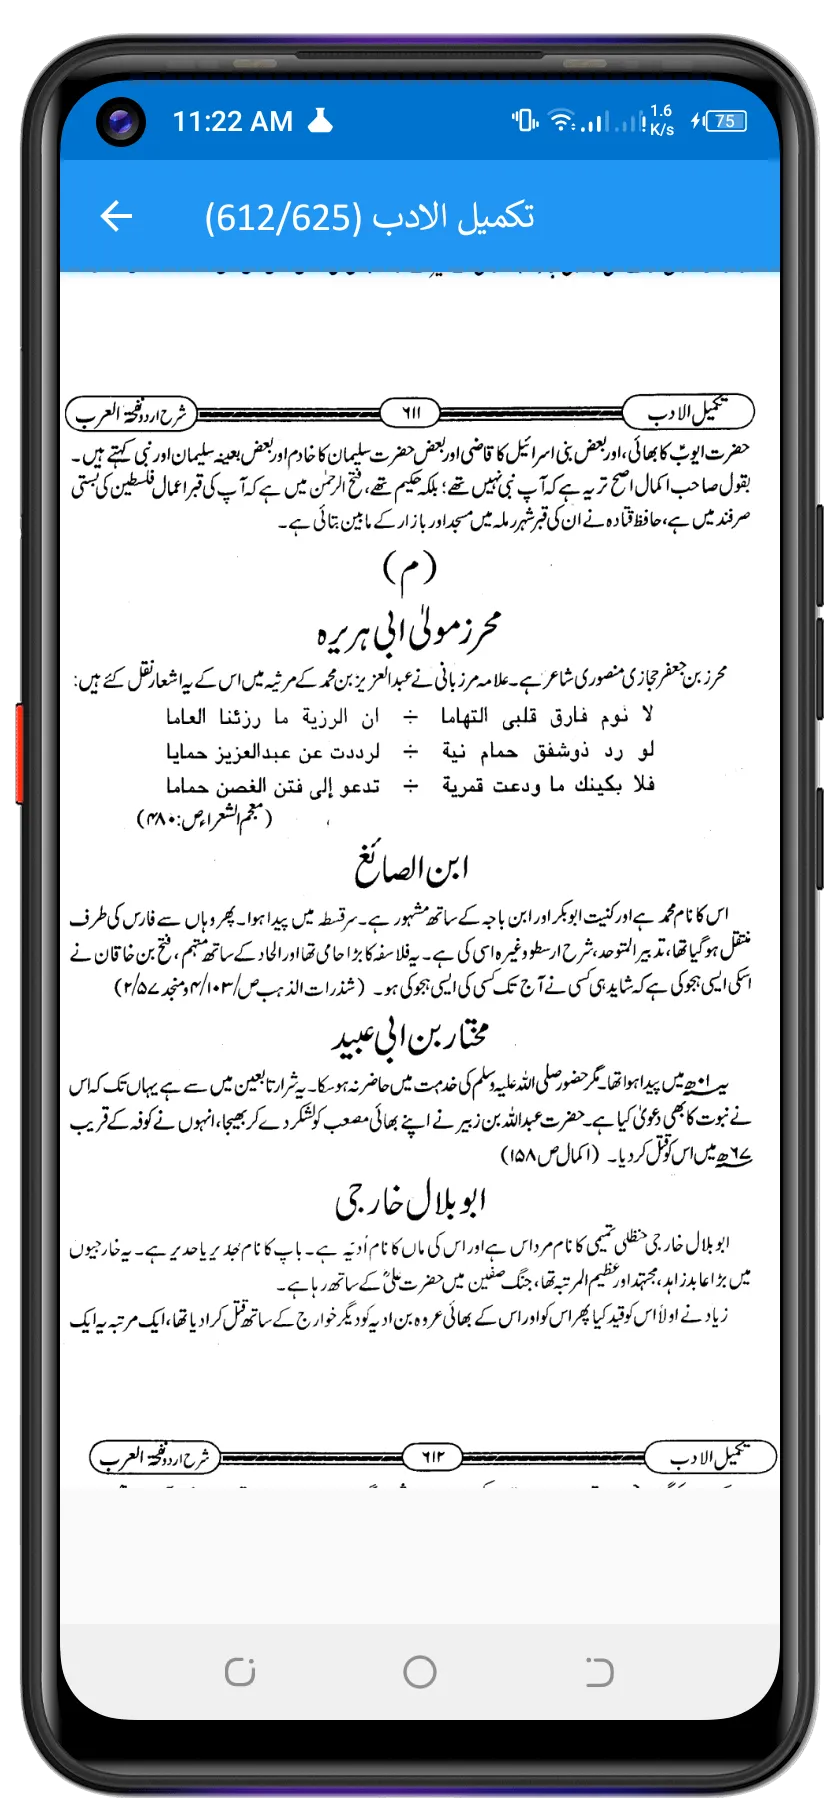 11:22 AM
1.6
K/s
75
تکمیل الادب (612/625)
تکمیل الادب ۶۱۱ شرح اردو نفحۃ العرب
حضرت ایوبؑ کا بھائی، اور بعض بنی اسرائیل کا قاضی اور بعض حضرت سلیمان کا خادم اور بعض بعینہ سلیمان اور نبی کہتے ہیں۔
بقول صاحب اکمال اصح تر یہ ہے کہ آپ نبی نہیں تھے؛ بلکہ حکیم تھے، فتح الرحمٰن میں ہے کہ آپ کی قبر اعمال فلسطین کی بستی
صرفند میں ہے، حافظ قتادہ نے ان کی قبر شہر رملہ میں مسجد اور بازار کے مابین بتائی ہے۔
(م)
محرز مولیٰ ابی ہریرہ
محرز بن جعفر حجازی منصوری شاعر ہے۔ علامہ مرزبانی نے عبدالعزیز بن محمد کے مرثیہ میں اس کے یہ اشعار نقل کئے ہیں:
لا نوم فارق قلبی التهاما ÷ ان الرزية ما رزئنا العاما
لو رد ذوشفق حمام نية ÷ لرددت عن عبدالعزيز حمايا
فلا بكينك ما ودعت قمرية ÷ تدعو إلى فتن الغصن حماما
(معجم الشعراء ص: ۴۸۰)
ابن الصائغ
اس کا نام محمد ہے اور کنیت ابوبکر اور ابن باجہ کے ساتھ مشہور ہے۔ سرقسطہ میں پیدا ہوا۔ پھر وہاں سے فارس کی طرف
منتقل ہوگیا تھا، تدبیر المتوحد، شرح ارسطو وغیرہ اسی کی ہے۔ یہ فلاسفہ کا بڑا حامی تھا اور الحاد کے ساتھ متہم، فتح بن خاقان نے
اسکی ایسی ہجو کی ہے کہ شاید ہی کسی نے آج تک کسی کی ایسی ہجو کی ہو۔ (شذرات الذہب ص/۱۰۳/۴ ومنجد ۲/۵۷)
مختار بن ابی عبید
۱ھ میں پیدا ہوا تھا۔ مگر حضور صلی اللہ علیہ وسلم کی خدمت میں حاضر نہ ہوسکا۔ یہ شرار تابعین میں سے ہے یہاں تک کہ اس
نے نبوت کا بھی دعویٰ کیا ہے۔ حضرت عبداللہ بن زبیر نے اپنے بھائی مصعب کو لشکر دے کر بھیجا، انہوں نے کوفہ کے قریب
۶۷ھ میں اس کو قتل کردیا۔ (اکمال ص ۱۵۸)
ابو بلال خارجی
ابو بلال خارجی حنظلی تمیمی کا نام مرداس ہے اور اس کی ماں کا نام اُدیّہ ہے۔ باپ کا نام جُدیر یا حدیر ہے۔ یہ خارجیوں
میں بڑا عابد زاہد، مجتہد اور عظیم المرتبہ تھا، جنگ صفین میں حضرت علیؓ کے ساتھ رہا ہے۔
زیاد نے اولاً اس کو قید کیا پھر اس کو اور اس کے بھائی عروہ بن ادیہ کو دیگر خوارج کے ساتھ قتل کرادیا تھا، ایک مرتبہ یہ ایک
تکمیل الادب ۶۱۲ شرح اردو نفحۃ العرب